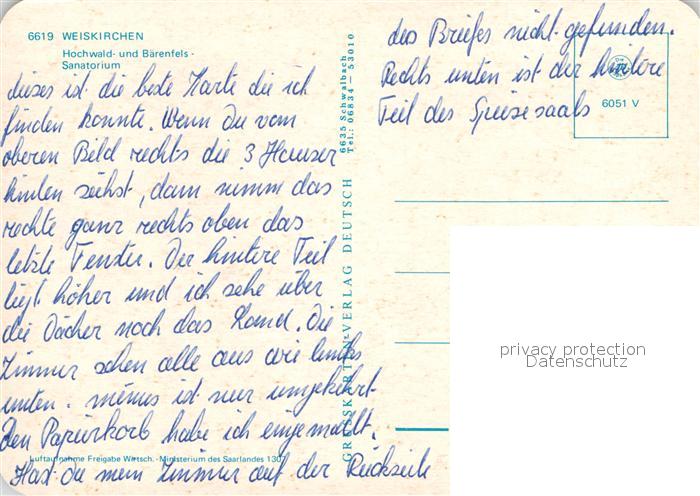 6619 WEISKIRCHEN
Hochwald- und Bärenfels -
Sanatorium
dieses ist die beste Karte die ich
finden konnte. Wenn du vom
oberen Bild rechts die 3 Häuser
hinten siehst, dann nimm das
rechte ganz rechts oben das
letzte Fenster. Der hintere Teil
liegt höher und ich sehe über
die Dächer noch das Land. Die
Zimmer sehen alle aus wie links
unten. meines ist nur umgekehrt.
den Papierkorb habe ich eingemallt.
Luftaufnahme Freigabe Wirtsch.-Ministerium des Saarlandes 130/
Hast du mein Zimmer auf der Rückseite
GRUSSKARTEN-VERLAG DEUTSCH
6635 Schwalbach
Tel.: 06834 — 53010
des Briefes nicht gefunden.
Rechts unten ist der hintere
Teil des Speisesaals
6051 V
privacy protection
Datenschutz